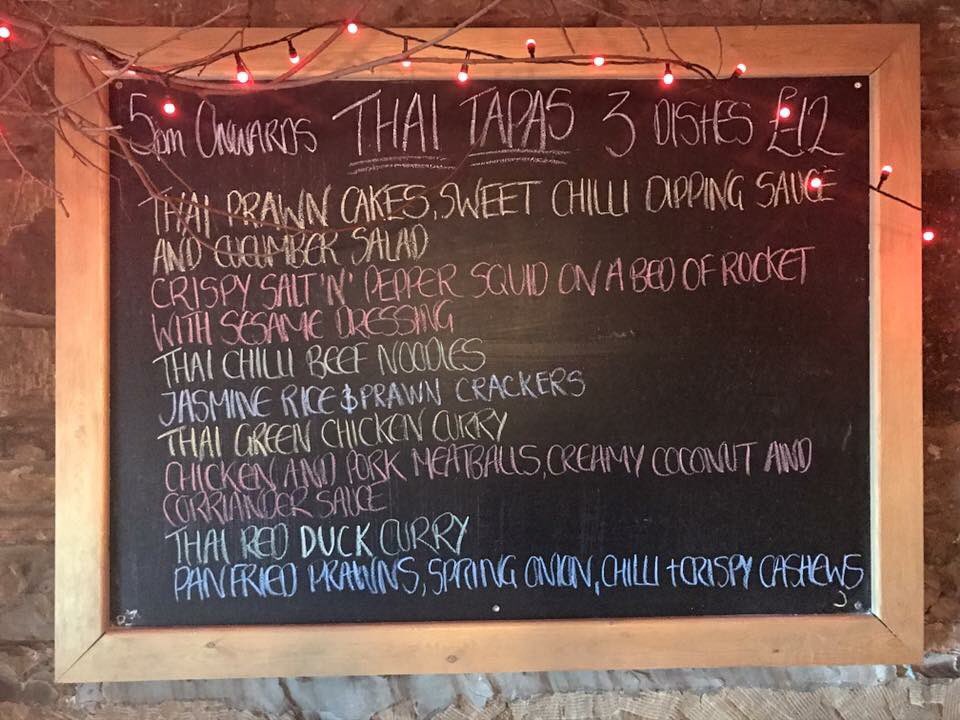 5pm ONWARDS THAI TAPAS 3 DISHES £12
THAI PRAWN CAKES, SWEET CHILLI DIPPING SAUCE
AND CUCUMBER SALAD
CRISPY SALT 'N' PEPPER SQUID ON A BED OF ROCKET
WITH SESAME DRESSING
THAI CHILLI BEEF NOODLES
JASMINE RICE & PRAWN CRACKERS
THAI GREEN CHICKEN CURRY
CHICKEN AND PORK MEATBALLS, CREAMY COCONUT AND
CORRIANDER SAUCE
THAI RED DUCK CURRY
PAN FRIED PRAWNS, SPRING ONION, CHILLI + CRISPY CASHEWS